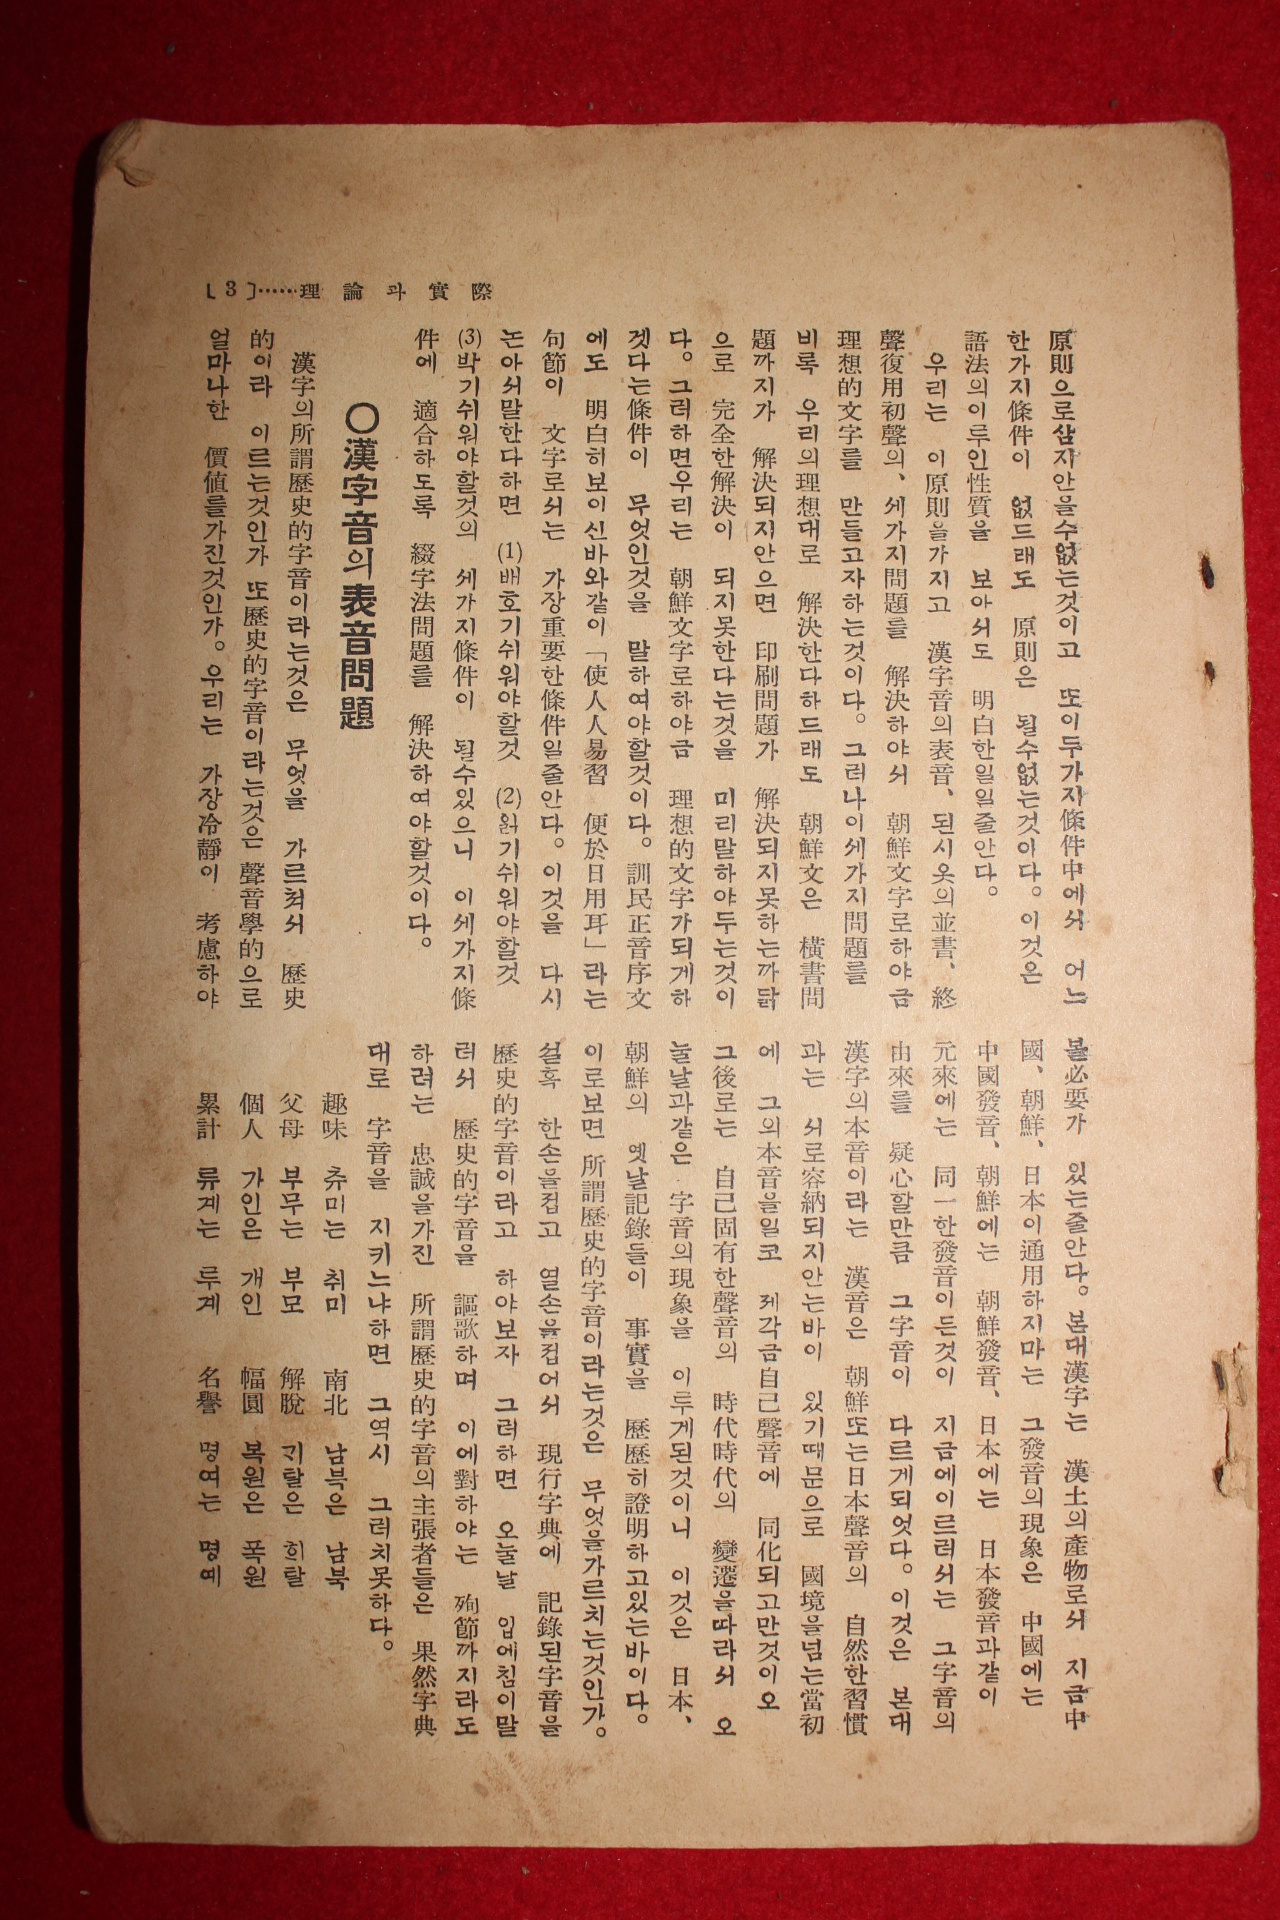 [3]……理論과實際
原則으로삼지안을수없는것이고 또이두가지條件中에서 어느
한가지條件이 없드래도 原則은 될수없는것이다。이것은
語法의이루인性質을 보아서도 明白한일일줄안다。
우리는 이原則을가지고 漢字音의表音、된시옷의並書、終
聲復用初聲의、세가지問題를 解決하야서 朝鮮文字로하야금
理想的文字를 만들고자하는것이다。그러나이세가지問題를
비록 우리의理想대로 解決한다하드래도 朝鮮文은 橫書問
題까지가 解決되지안으면 印刷問題가 解決되지못하는까닭
으로 完全한解決이 되지못한다는것을 미리말하야두는것이
다。그러하면우리는 朝鮮文字로하야금 理想的文字가되게하
겟다는條件이 무엇인것을 말하여야할것이다。訓民正音序文
에도 明白히보이신바와갈이「使人人易習 便於日用耳」라는
句節이 文字로서는 가장重要한條件일줄안다。이것을 다시
논아서말한다하면 (1)배호기쉬워야할것 (2)읽기쉬워야할것
(3)박기쉬워야할것의 세가지條件이 될수있으니 이세가지條
件에 適合하도록 綴字法問題를 解決하여야할것이다。
○漢字音의表音問題
漢字의所謂歷史的字音이라는것은 무엇을 가르처서 歷史
的이라 이르는것인가 또歷史的字音이라는것은 聲音學的으로
얼마나한 價値를가진것인가。우리는 가장冷靜이 考慮하야
볼必要가 있는줄안다。본대漢字는 漢土의產物로서 지금中
國、朝鮮、日本이通用하지마는 그發音의現象은 中國에는
中國發音、朝鮮에는 朝鮮發音、日本에는 日本發音과갈이
元來에는 同一한發音이든것이 지금에이르러서는 그字音의
由來를 疑心할만큼 그字音이 다르게되엇다。이것은 본대
漢字의本音이라는 漢音은 朝鮮또는日本聲音의 自然한習慣
과는 서로容納되지안는바이 있기때문으로 國境을넘는當初
에 그의本音을일코 제각금自己聲音에 同化되고만것이오
그後로는 自己固有한聲音의 時代時代의 變遷을따라서 오
눌날과갈은 字音의現象을 이루게된것이니 이것은 日本、
朝鮮의 옛날記錄들이 事實을 歷歷히證明하고있는바이다。
이로보면 所謂歷史的字音이라는것은 무엇을가르치는것인가。
설혹 한손을접고 열손을접어서 現行字典에 記錄된字音을
歷史的字音이라고 하야보자 그러하면 오눌날 입에침이말
러서 歷史的字音을 謳歌하며 이에對하야는 殉節까지라도
하려는 忠誠을가진 所謂歷史的字音의主張者들은 果然字典
대로 字音을 지키느냐하면 그역시 그러치못하다。
趣味 츄미는 취미 南北 남븍은 남북
父母 부무는 부모 解脫 긔탈은 희탈
個人 가인은 개인 幅圓 복원은 폭원
累計 류계는 루계 名譽 명여는 명예